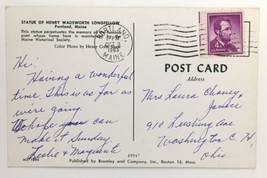 STATUE OF HENRY WADSWORTH LONGFELLOW
Portland, Maine
This statue perpetuates the memory of the
poet whose home here is maintained
Maine Historical Society.
Color Photo by Henry
PORTLAND
MAINE
1963
POST CARD
Address
Hi
Having a wonderful
time. This is as far as
we're going.
Do hope you can
make it Sunday
Leslie & Marguerite
Mrs Laura Chaney
910
Washington C. H.
Ohio
Published by Bromley and Company, Inc., Boston 16, Mass.